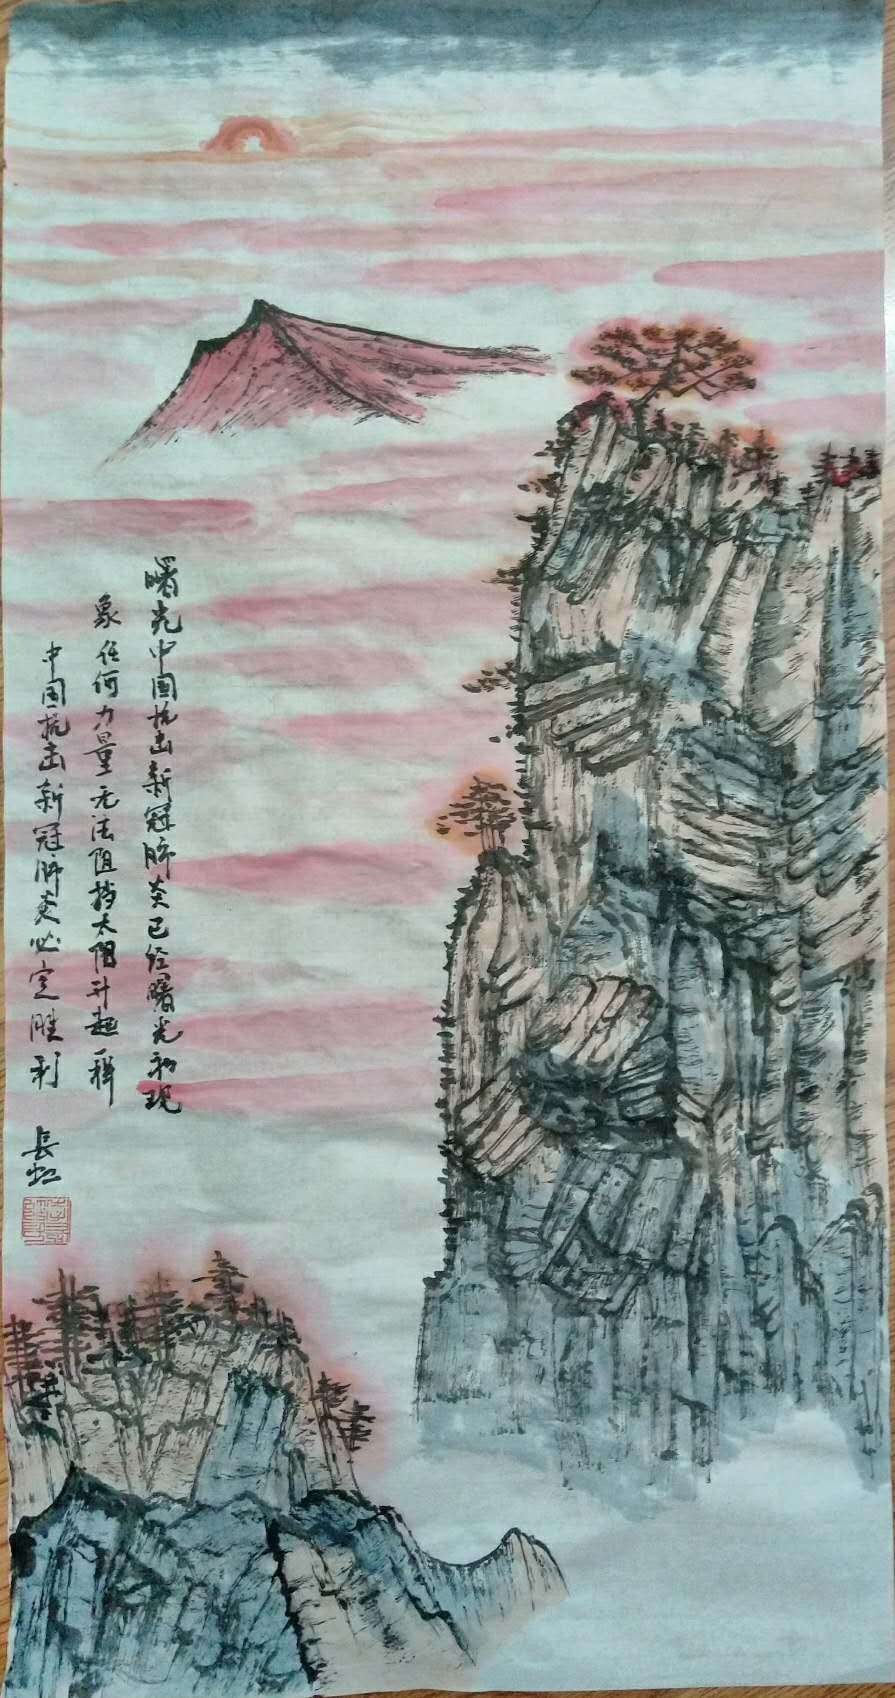 曙光中国抗击新冠肺炎已经曙光初现
象任何力量无法阻挡太阳升起一样
中国抗击新冠肺炎必定胜利
长虹